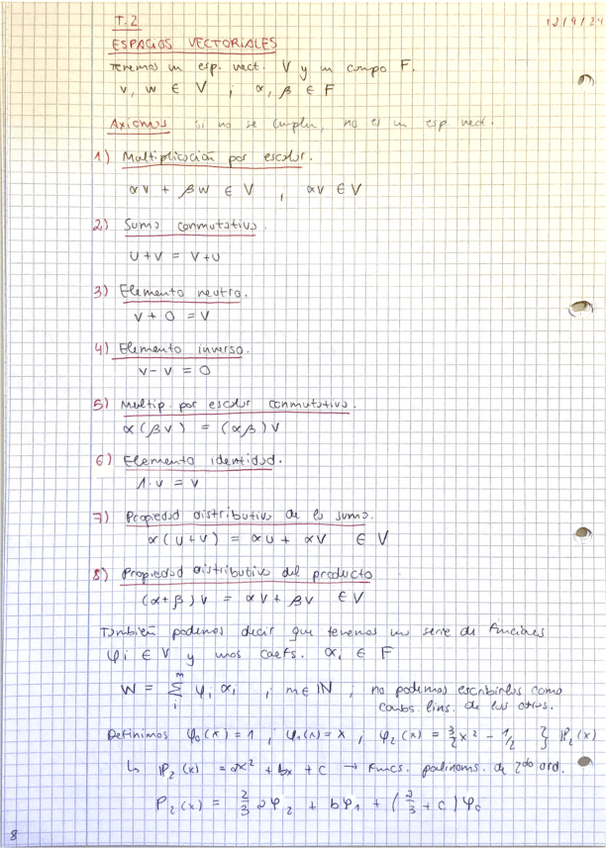 T.2
12/9/24
ESPACIOS VECTORIALES
Tenemos un esp. vect. V y un campo F.
v, w ∈ V ; α, β ∈ F
Axiomas si no se cumplen, no es un esp. vect.
1) Multiplicación por escalar.
αv + βw ∈ V , αv ∈ V
2) Suma conmutativa.
u+v = v+u
3) Elemento neutro.
v + 0 = v
4) Elemento inverso.
v - v = 0
5) Multip. por escalar conmutativa.
α(βv) = (αβ)v
6) Elemento identidad.
1·v = v
7) Propiedad distributiva de la suma.
α(u+v) = αu + αv ∈ V
8) Propiedad distributiva del producto
(α+β)v = αv + βv ∈ V
También podemos decir que tenemos una serie de funciones
φi ∈ V y unos coefs. αi ∈ F
W = Σ_i^m φi αi , m ∈ ℕ ; no podemos escribirlos como
combs. lins. de los otros.
Definimos φ0(x) = 1 ; φ1(x) = x ; φ2(x) = 3/2 x² - 1/2 } ℙ2(x)
↳ ℙ2(x) = ax² + bx + c → funcs. polinoms. de 2do ord.
P2(x) = 2/3 a φ2 + b φ1 + (2/3 + c) φ0
8